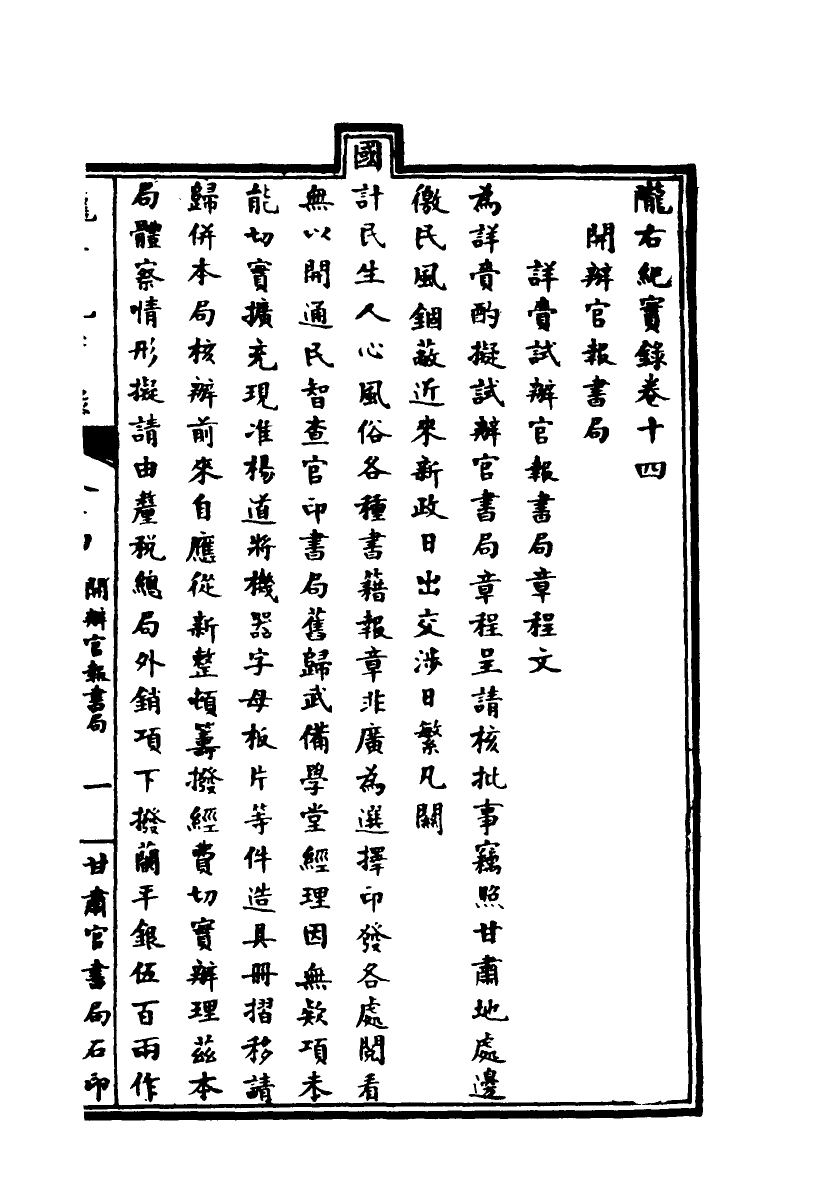 隴右紀實錄卷十四
開辦官報書局
詳賫試辦官報書局章程文
為詳賫酌擬試辦官書局章程呈請核批事竊照甘肅地處邊
徼民風錮蔽近來新政日出交涉日繁凡關
國
計民生人心風俗各種書籍報章非廣為選擇印發各處閱看
無以開通民智查官印書局舊歸武備學堂經理因無款項未
能切實擴充現准楊道將機器字母板片等件造具冊摺移請
歸併本局核辦前來自應從新整頓籌撥經費切實辦理茲本
局體察情形擬請由釐稅總局外銷項下撥蘭平銀伍百兩作
開辦官報書局 一 甘肅官書局石印